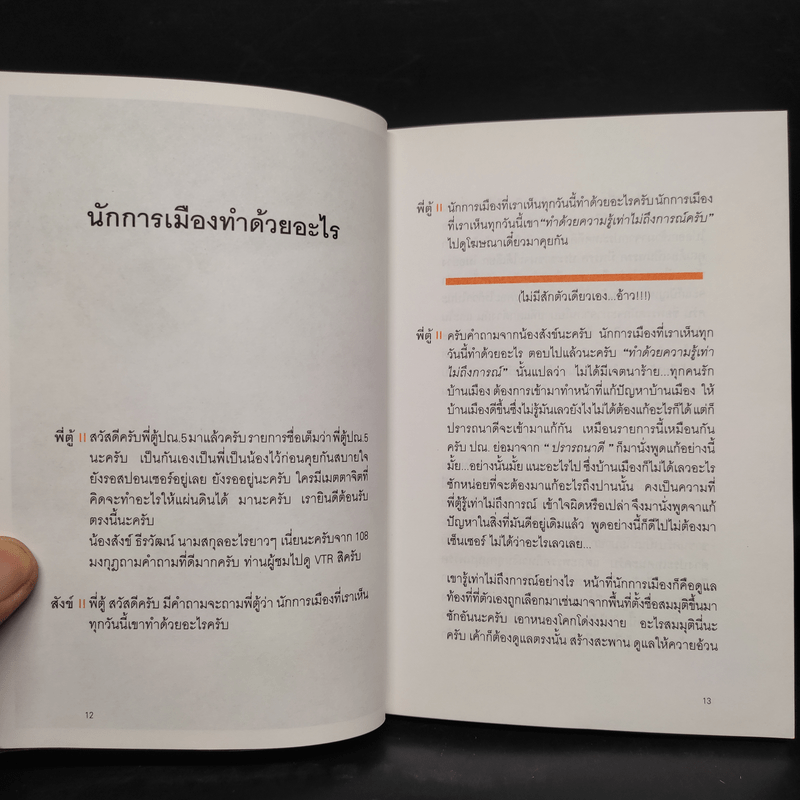 นักการเมืองทำด้วยอะไร
พี่ตู้ || สวัสดีครับพี่ตู้ปณ.5มาแล้วครับ รายการชื่อเต็มว่าพี่ตู้ปณ.5
นะครับ เป็นกันเองเป็นพี่เป็นน้องไว้ก่อนคุยกันสบายใจ
ยังรอสปอนเซอร์อยู่เลย ยังรออยู่นะครับ ใครมีเมตตาจิตที่
คิดจะทำอะไรให้แผ่นดินได้ มานะครับ เรายินดีต้อนรับ
ตรงนี้นะครับ
น้องสังข์ ธีรวัฒน์ นามสกุลอะไรยาวๆ เนี่ยนะครับจาก 108
มงกุฎถามคำถามที่ดีมากครับ ท่านผู้ชมไปดู VTR สิครับ
สังข์ || พี่ตู้ สวัสดีครับ มีคำถามจะถามพี่ตู้ว่า นักการเมืองที่เราเห็น
ทุกวันนี้เขาทำด้วยอะไรครับ
12
พี่ตู้ || นักการเมืองที่เราเห็นทุกวันนี้ทำด้วยอะไรครับ นักการเมือง
ที่เราเห็นทุกวันนี้เขา “ทำด้วยความรู้เท่าไม่ถึงการณ์ครับ”
ไปดูโฆษณาเดี๋ยวมาคุยกัน
(ไม่มีสักตัวเดียวเอง...อ้าว!!!)
พี่ตู้ || ครับคำถามจากน้องสังข์นะครับ นักการเมืองที่เราเห็นทุก
วันนี้ทำด้วยอะไร ตอบไปแล้วนะครับ “ทำด้วยความรู้เท่า
ไม่ถึงการณ์” นั้นแปลว่า ไม่ได้มีเจตนาร้าย...ทุกคนรัก
บ้านเมือง ต้องการเข้ามาทำหน้าที่แก้ปัญหาบ้านเมือง ให้
บ้านเมืองดีขึ้นซึ่งไม่รู้มันเลวยังไงไม่ได้ต้องแก้อะไรก็ได้ แต่ก็
ปรารถนาดีจะเข้ามาแก้กัน เหมือนรายการนี้เหมือนกัน
ครับ ปณ. ย่อมาจาก “ ปรารถนาดี ” ก็มานั่งพูดแก้อย่างนี้
มั้ย...อย่างนั้นมั้ย แนะอะไรไป ซึ่งบ้านเมืองก็ไม่ได้เลวอะไร
ซักหน่อยที่จะต้องมาแก้อะไรถึงปานนั้น คงเป็นความที่
พี่ตู้รู้เท่าไม่ถึงการณ์ เข้าใจผิดหรือเปล่า จึงมานั่งพูดจาแก้
ปัญหาในสิ่งที่มันดีอยู่เดิมแล้ว พูดอย่างนี้ก็ดีไปไม่ต้องมา
เซ็นเซอร์ ไม่ได้ว่าอะไรเลวเลย...
เขารู้เท่าไม่ถึงการณ์อย่างไร หน้าที่นักการเมืองก็คือดูแล
ท้องที่ที่ตัวเองถูกเลือกมาเช่นมาจากพื้นที่ตั้งชื่อสมมุติขึ้นมา
ซักอันนะครับ เอาหนองโคกโด่งงมงาย อะไรสมมุตินี่นะ
ครับ เค้าก็ต้องดูแลตรงนั้น สร้างสะพาน ดูแลให้ควายอ้วน
13